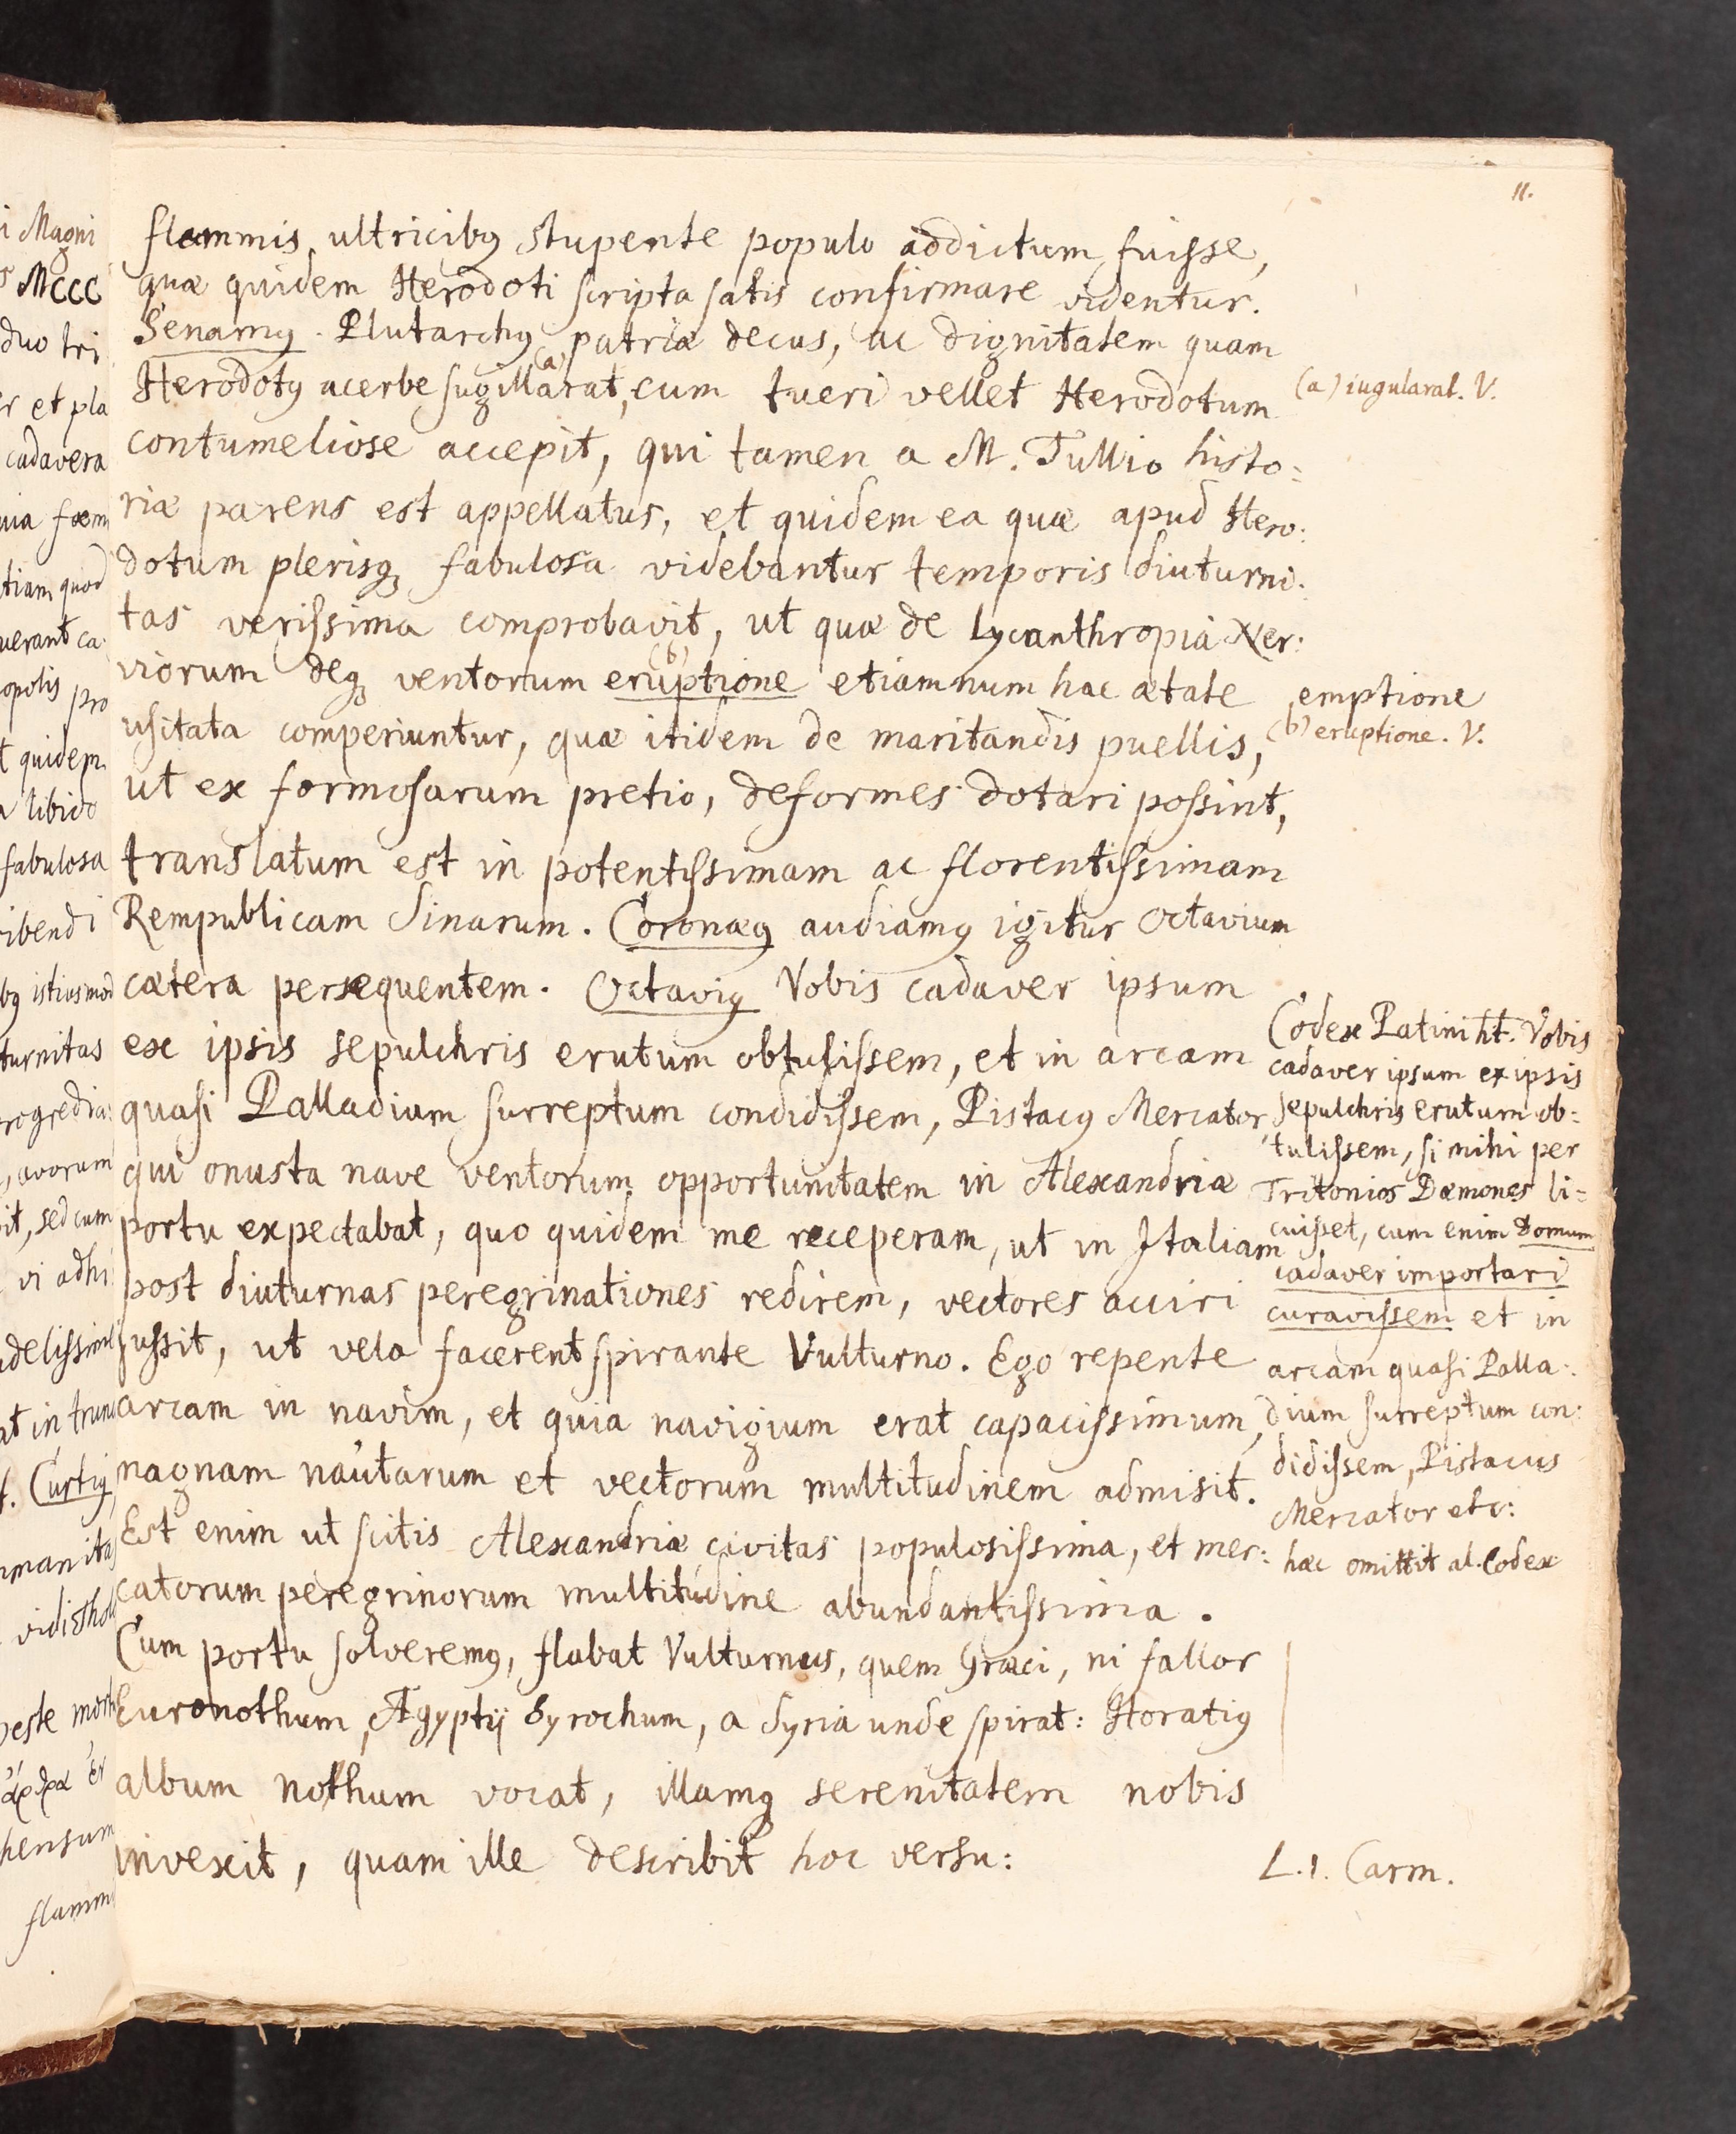 11.
flammis, ultricibꝯ stupente populo addictum fuisse,
quæ quidem Herodoti scripta satis confirmare videntur.
Senamꝯ. Plutarchꝯ patriæ decus, ac dignitatem quam
Herodotꝯ acerbe sugillarat, (a) cum tueri vellet Herodotum
contumeliose accepit, qui tamen a M. Tullio histo:
riæ parens est appellatus, et quidem ea quæ apud Hero:
dotum plerisq. fabulosa videbantur temporis diuturni:
tas verissima comprobavit, ut quæ de Lycanthropia Ner:
viorum deq. ventorum eruptione (b) etiamnum hac ætate
usitata comperiuntur, quæ itidem de maritandis puellis,
ut ex formosarum pretio, deformes dotari possint,
translatum est in potentissimam ac florentissimam
Rempublicam Sinarum. Coronæꝯ audiamꝯ igitur Octavium
cætera persequentem. Octaviꝯ Vobis cadaver ipsum
ex ipsis sepulchris erutum obtulissem, et in arcam
quasi Palladium surreptum condidissem, Pistacꝯ Mercator,
qui onusta nave ventorum opportunitatem in Alexandriæ
portu expectabat, quo quidem me receperam, ut in Italiam
post diuturnas peregrinationes redirem, vectores acciri
jussit, ut vela facerent spirante Vulturno. Ego repente
arcam in navim, et quia navigium erat capacissimum,
magnam nautarum et vectorum multitudinem admisit.
Est enim ut scitis Alexandria civitas populosissima, et mer:
catorum peregrinorum multitudine abundantissima.
Cum portu solveremꝯ, flabat Vulturnus, quem Græci, ni fallor
Euronothum, Ægyptij Syrochum, a Syria unde spirat: Horatiꝯ
album nothum vocat, illamq. serenitatem nobis
invexit, quam ille describit hoc versu:
(a) iugularat. V.
emptione
(b) eruptione. V.
Codex Patini ht. Vobis
cadaver ipsum ex ipsis
sepulchris erutum ob:
tulissem, si mihi per
Tritonios Dæmones li=
cuisset, cum enim domum
cadaver importari
curavissem et in
arcam quasi Palla:
dium surreptum con:
didissem, Pistacus
Mercator etc:
hæc omittit al. Codex
L. 1. Carm.
i Magni
MCCC
duo tri
r et pla
cadavera
uia fæm
tiam quod
uerant ca
opolis pro
t quidem
libido
fabulosa
ibendi
bꝯ istiusmod
turnitas
rogredia:
avorum
it, sed cum
vi adhi
delissimi
at in trun
t. Curtiꝯ
manita
vidistho
peste mor
hensum
flamm